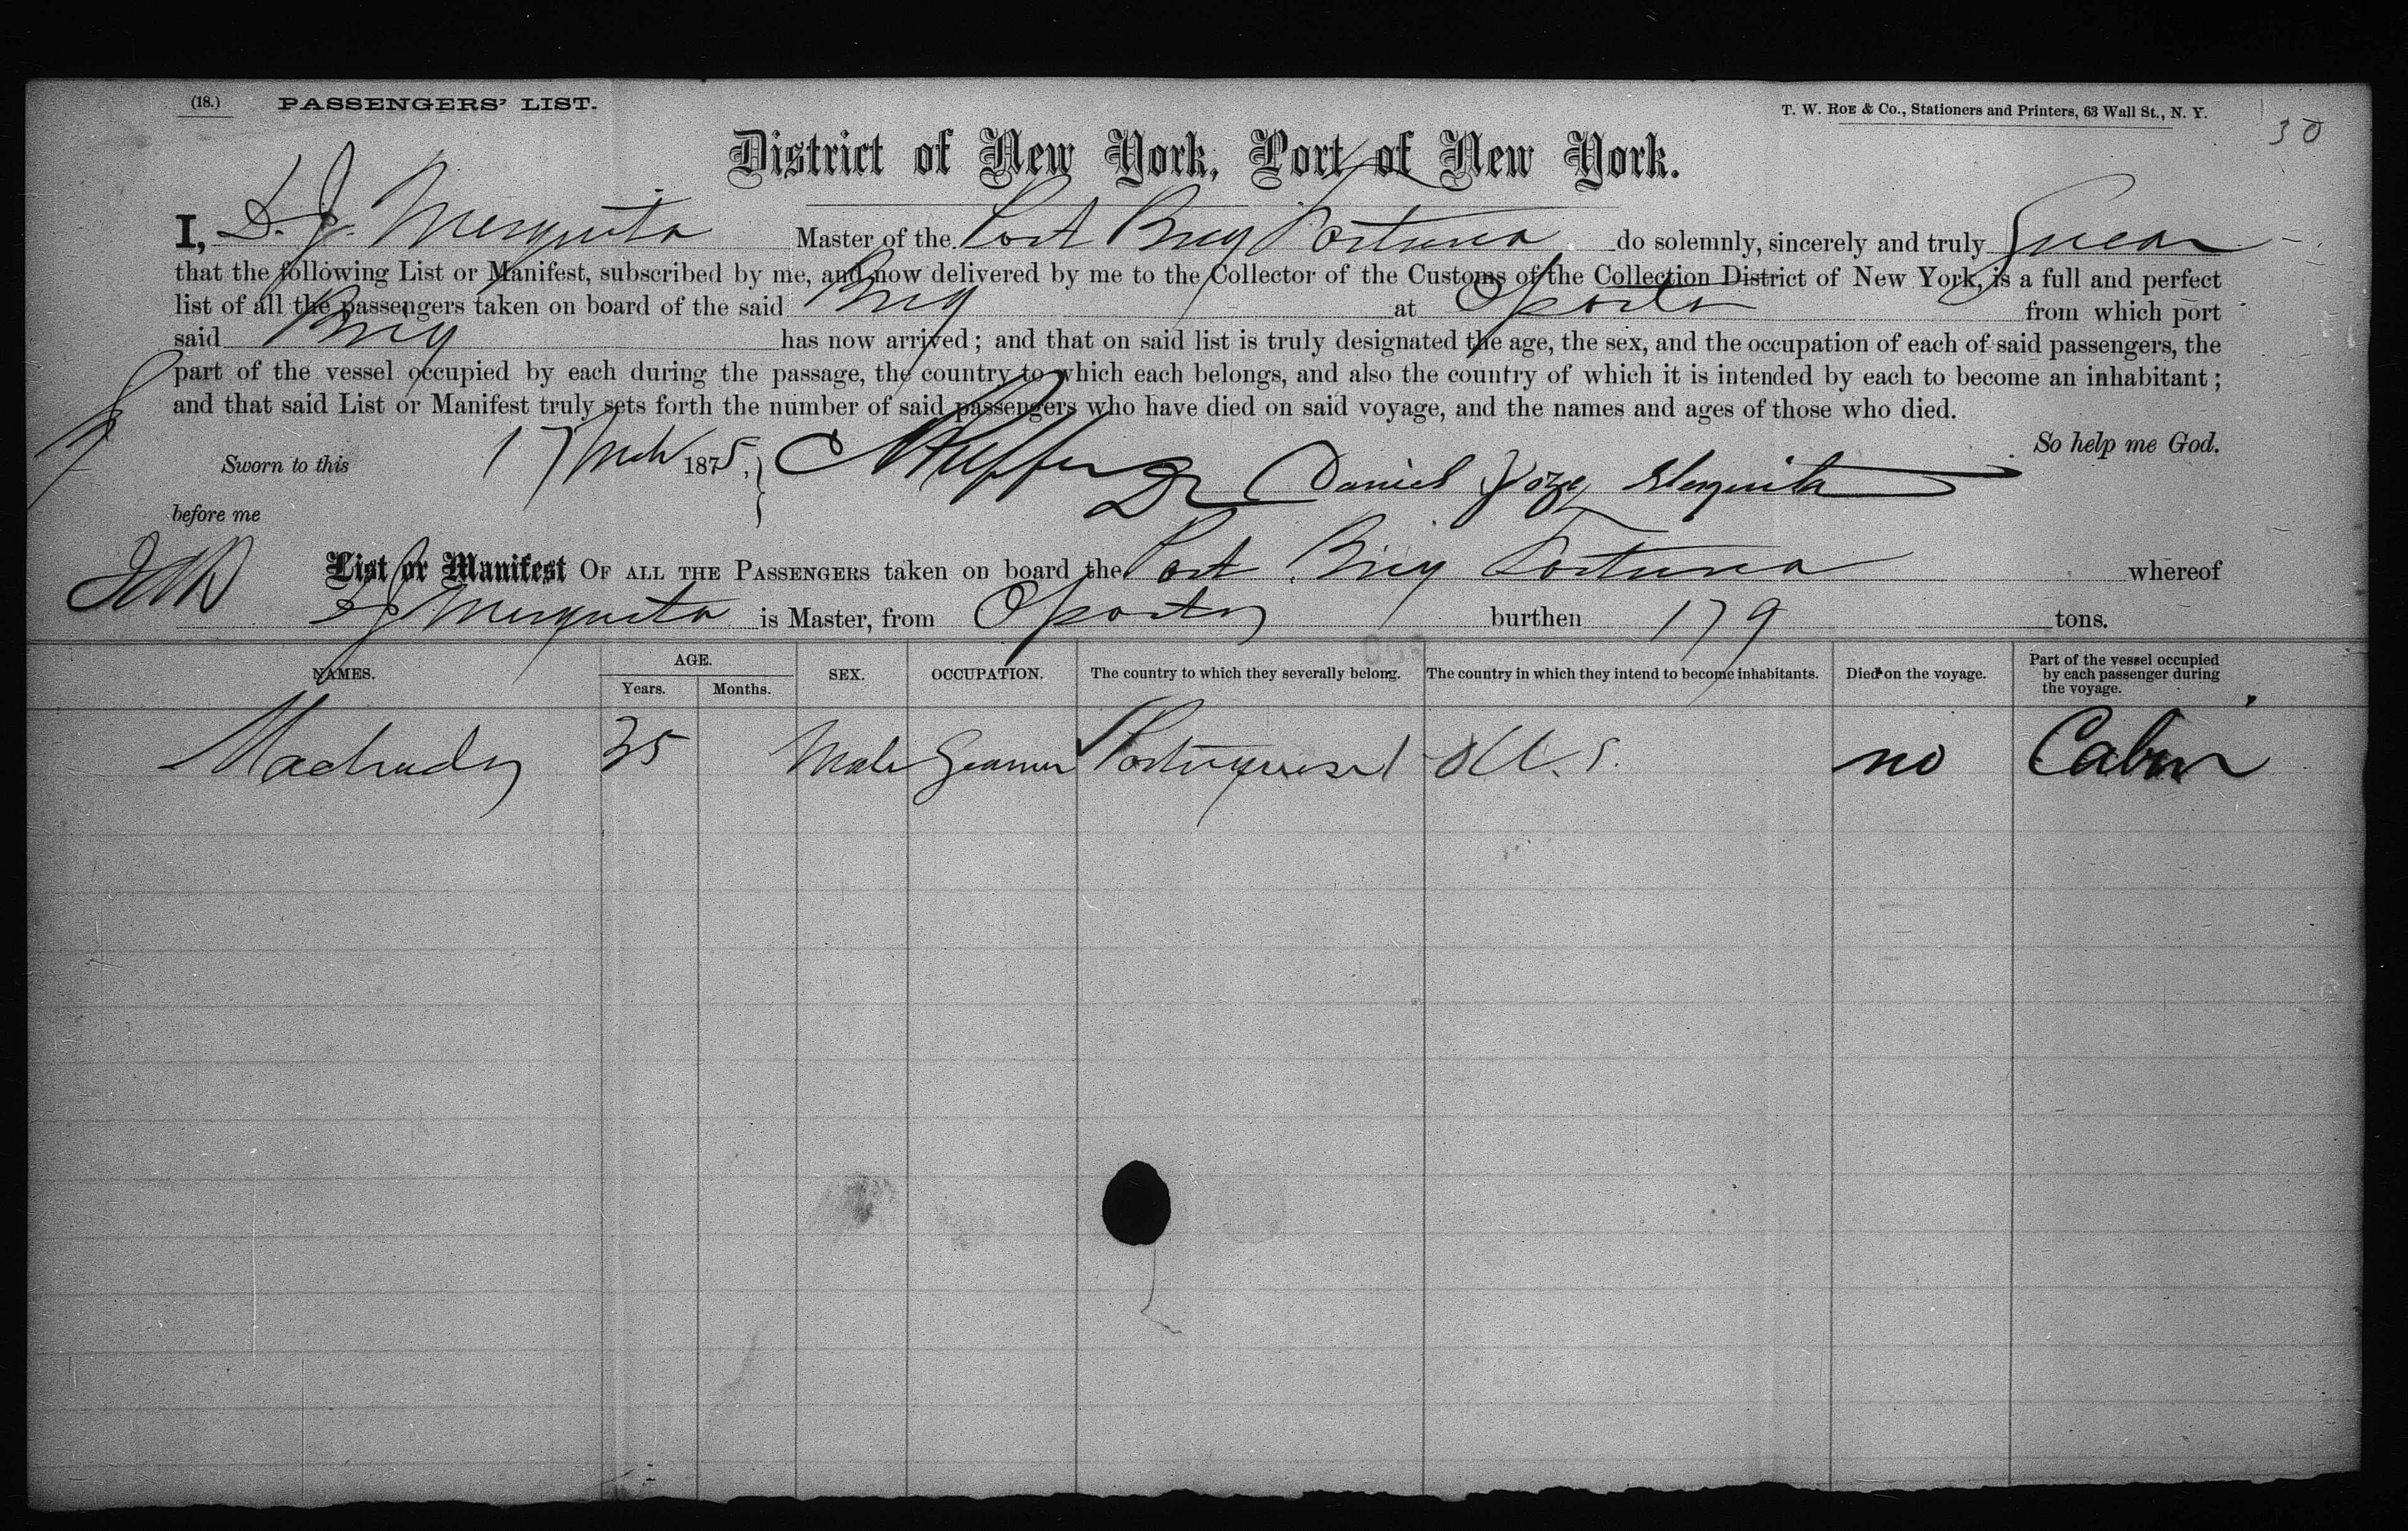 (18.) PASSENGERS' LIST.
T. W. ROE & Co., Stationers and Printers, 63 Wall St., N. Y.
30
District of New York, Port of New York.
I, D. J. Mesquita Master of the Port Brig Fortuna do solemnly, sincerely and truly Swear
that the following List or Manifest, subscribed by me, and now delivered by me to the Collector of the Customs of the Collection District of New York, is a full and perfect
list of all the passengers taken on board of the said Brig at Oporto from which port
said Brig has now arrived; and that on said list is truly designated the age, the sex, and the occupation of each of said passengers, the
part of the vessel occupied by each during the passage, the country to which each belongs, and also the country of which it is intended by each to become an inhabitant;
and that said List or Manifest truly sets forth the number of said passengers who have died on said voyage, and the names and ages of those who died.
So help me God.
Sworn to this 17 Mch 1875, Daniel Joze Mesquita
before me
List or Manifest OF ALL THE PASSENGERS taken on board the Port Brig Fortuna whereof
D J Mesquita is Master, from Oporto burthen 179 tons.
NAMES. AGE. Years. Months. SEX. OCCUPATION. The country to which they severally belong. The country in which they intend to become inhabitants. Died on the voyage. Part of the vessel occupied by each passenger during the voyage.
35 Male Seaman Portuguese U. S. no Cabin